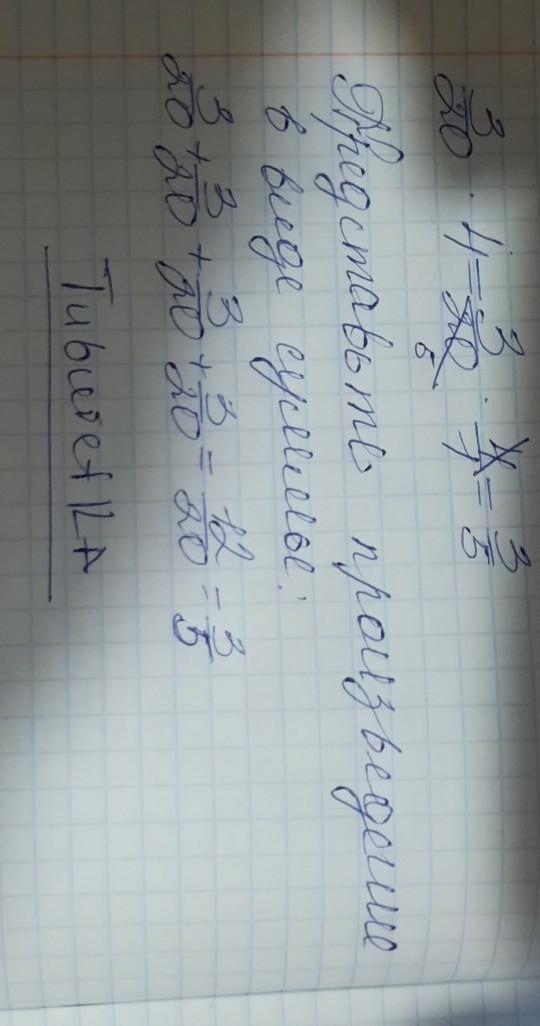 3/20 · 4 = 3/20 · 4/1 = 3/5
5
Представьть произведение
в виде суммы:
3/20 + 3/20 + 3/20 + 3/20 = 12/20 = 3/5